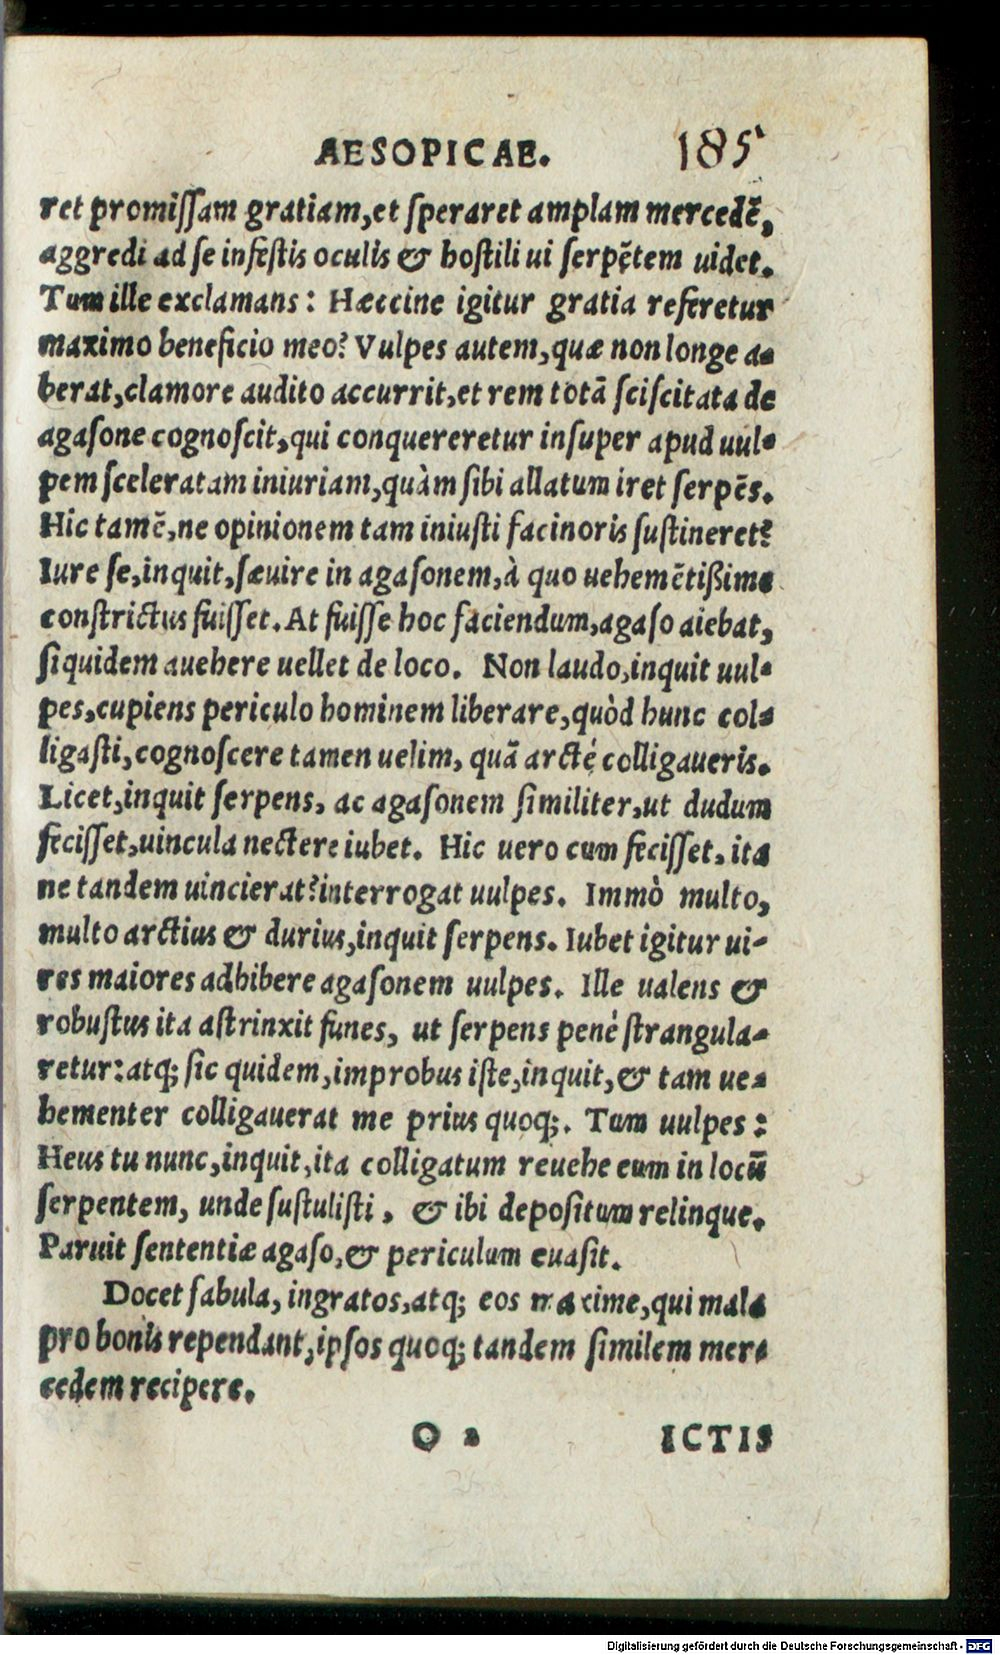 AESOPICAE. 185
ret promissam gratiam, et speraret amplam mercedē,
aggredi ad se infestis oculis & hostili ui serpētem uidet.
Tum ille exclamans: Hæccine igitur gratia referetur
maximo beneficio meo? Vulpes autem, quæ non longe a-
berat, clamore audito accurrit, et rem totā sciscitata de
agasone cognoscit, qui conquereretur insuper apud uul-
pem sceleratam iniuriam, quàm sibi allatum iret serpēs.
Hic tamē, ne opinionem tam iniusti facinoris sustineret?
Iure se, inquit, sæuire in agasonem, à quo uehemētißime
constrictus fuisset. At fuisse hoc faciendum, agaso aiebat,
siquidem auehere uellet de loco. Non laudo, inquit uul-
pes, cupiens periculo hominem liberare, quòd hunc col-
ligasti, cognoscere tamen uelim, quā arctè colligaueris.
Licet, inquit serpens, ac agasonem similiter, ut dudum
fecisset, uincula nectere iubet. Hic uero cum fecisset, ita
ne tandem uincierat? interrogat uulpes. Immò multo,
multo arctius & durius, inquit serpens. Iubet igitur ui-
res maiores adhibere agasonem uulpes. Ille ualens &
robustus ita astrinxit funes, ut serpens penè strangula-
retur: atq; sic quidem, improbus iste, inquit, & tam ue-
hementer colligauerat me prius quoq;. Tum uulpes:
Heus tu nunc, inquit, ita colligatum reuehe eum in locū
serpentem, unde sustulisti, & ibi depositum relinque.
Paruit sententiæ agaso, & periculum euasit.
Docet fabula, ingratos, atq; eos maxime, qui mala
pro bonis rependant, ipsos quoq; tandem similem mer-
cedem recipere.
O 2 ICTIS
Digitalisierung gefördert durch die Deutsche Forschungsgemeinschaft - DFG